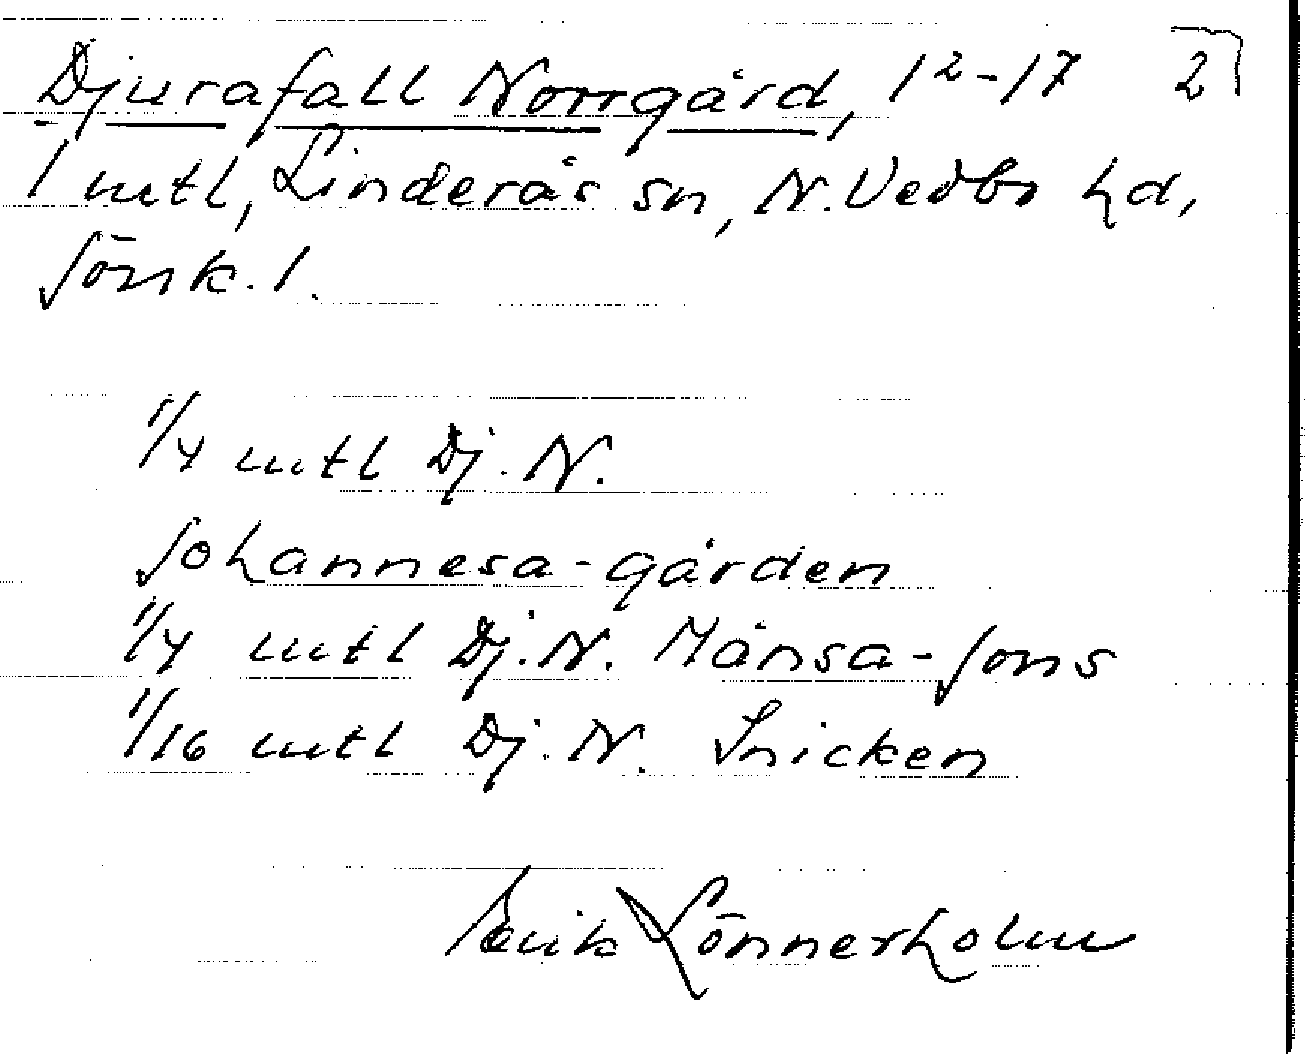 Djurafall Norrgård, 1²-17 2
1 mtl, Linderås sn, N. Vedbo hd,
Jönk. l.
1/4 mtl Dj. N.
Johannesa-gården
1/4 mtl Dj. N. Månsa-Jons
1/16 mtl Dj. N. Snicken
Erik Lönnerholm